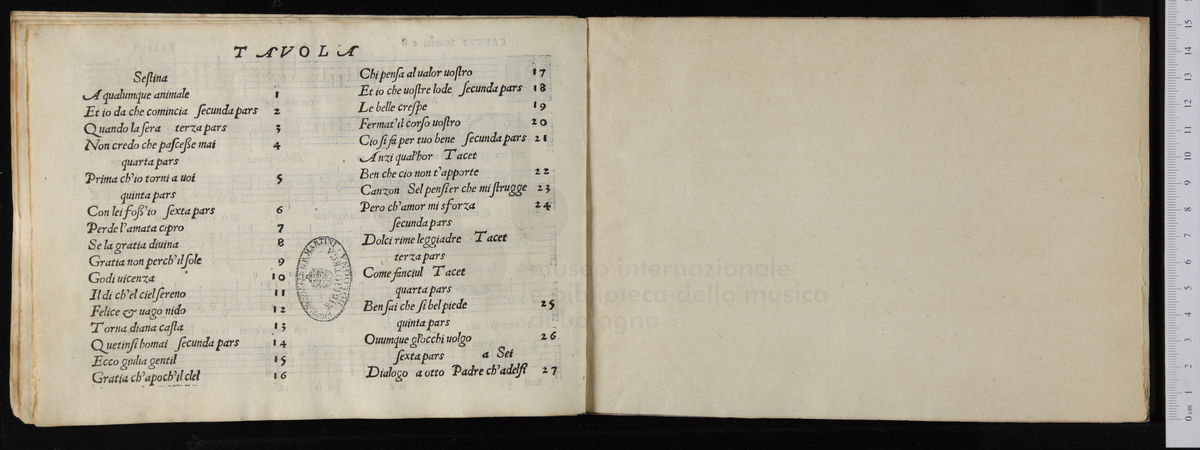 TAVOLA
Sestina
A qualumque animale 1
Et io da che comincia secunda pars 2
Quando la sera terza pars 3
Non credo che pascesse mai 4
quarta pars
Prima ch'io torni a uoi 5
quinta pars
Con lei foss'io sexta pars 6
Perde l'amata cipro 7
Se la gratia diuina 8
Gratia non perch'il sole 9
Godi uicenza 10
Il di ch'el ciel sereno 11
Felice & uago nido 12
Torna diana casta 13
Quetinsi homai secunda pars 14
Ecco giulia gentil 15
Gratia ch'apoch'il ciel 16
Chi pensa al ualor uostro 17
Et io che uostre lode secunda pars 18
Le belle crespe 19
Fermat'il corso uostro 20
Cio si fa per tuo bene secunda pars 21
Anzi qual'hor Tacet
Ben che cio non t'apporte 22
Canzon Sel pensier che mi strugge 23
Pero ch'amor mi sforza 24
secunda pars
Dolci rime leggiadre Tacet
terza pars
Come fanciul Tacet
quarta pars
Ben sai che si bel piede 25
quinta pars
Ouumque gl'occhi uolgo 26
sexta pars a Sei
Dialogo a otto Padre ch'adesst 27
museo internazionale
e biblioteca della musica
di bologna